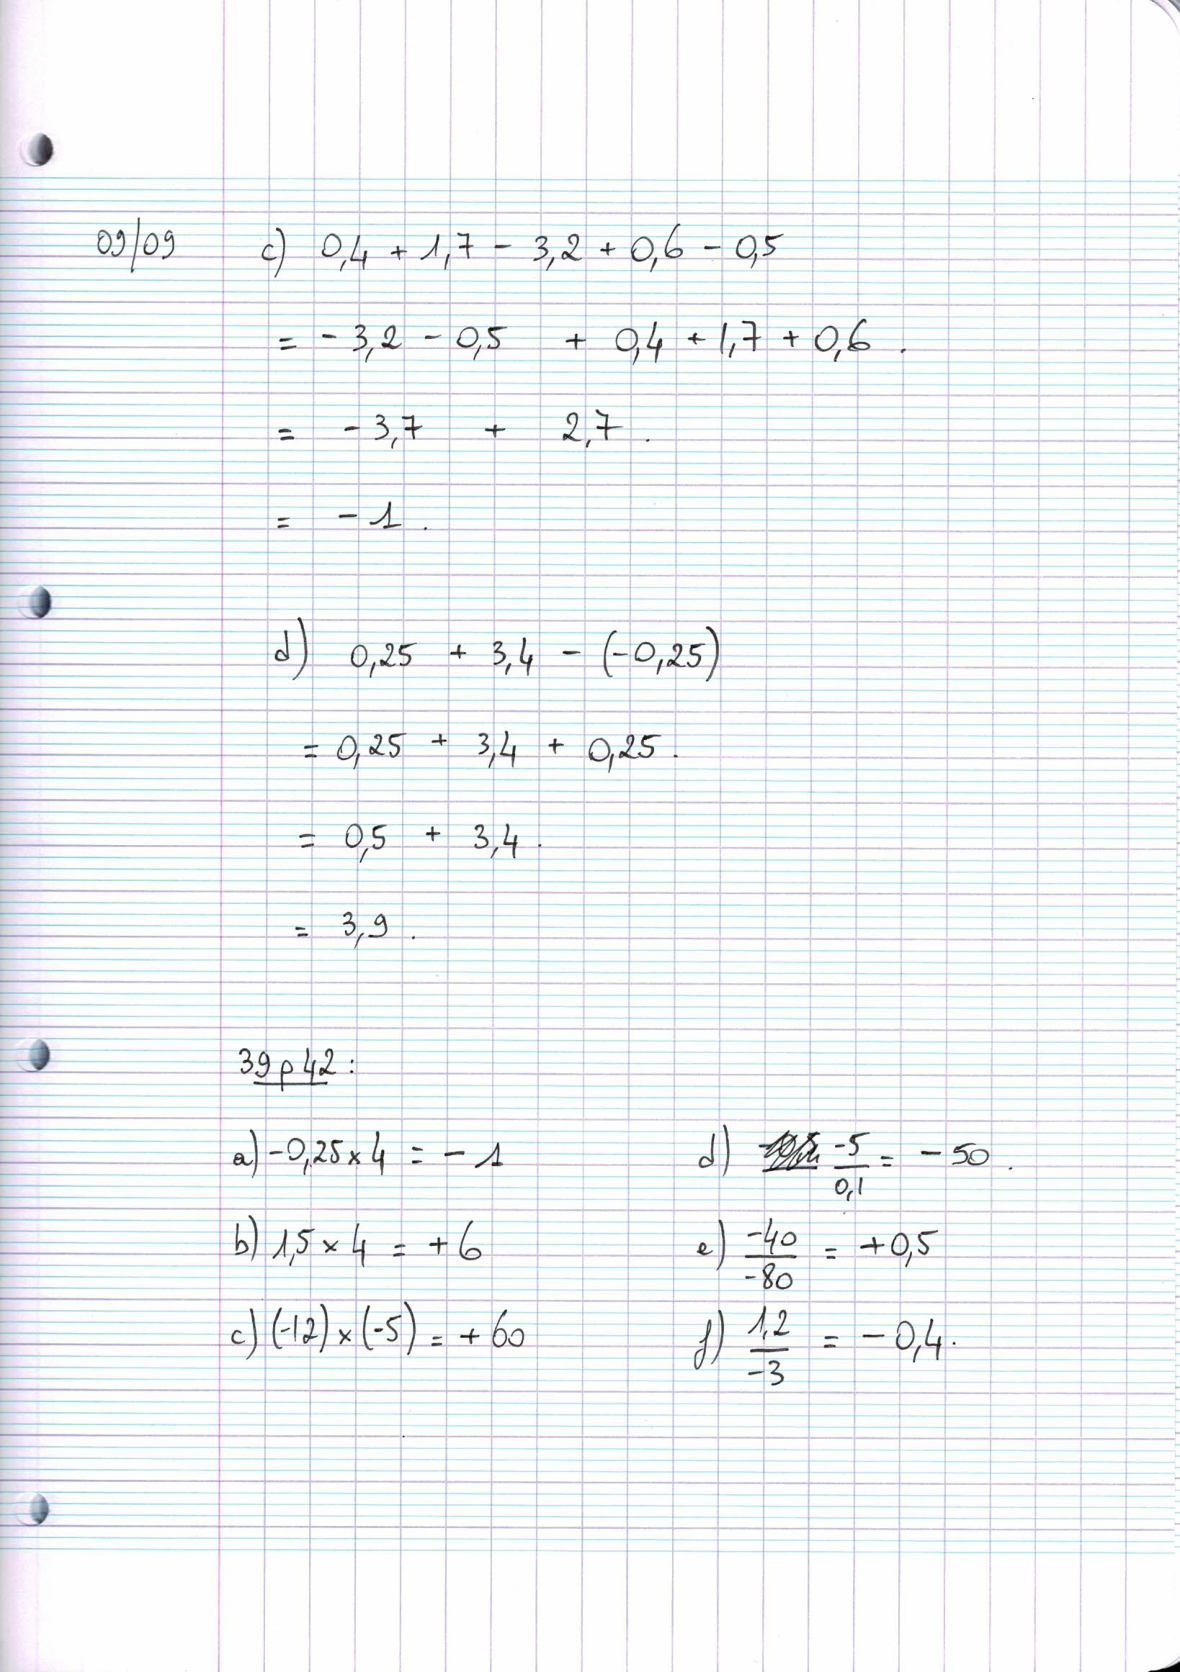 09/09 c) 0,4 + 1,7 - 3,2 + 0,6 - 0,5
= - 3,2 - 0,5 + 0,4 + 1,7 + 0,6 .
= - 3,7 + 2,7 .
= - 1 .
d) 0,25 + 3,4 - (-0,25)
= 0,25 + 3,4 + 0,25 .
= 0,5 + 3,4 .
= 3,9 .
39 p 42 :
a) -0,25 × 4 = - 1
b) 1,5 × 4 = + 6
c) (-12) × (-5) = + 60
d) -5/0,1 = - 50 .
e) -40/-80 = +0,5
f) 1,2/-3 = - 0,4 .